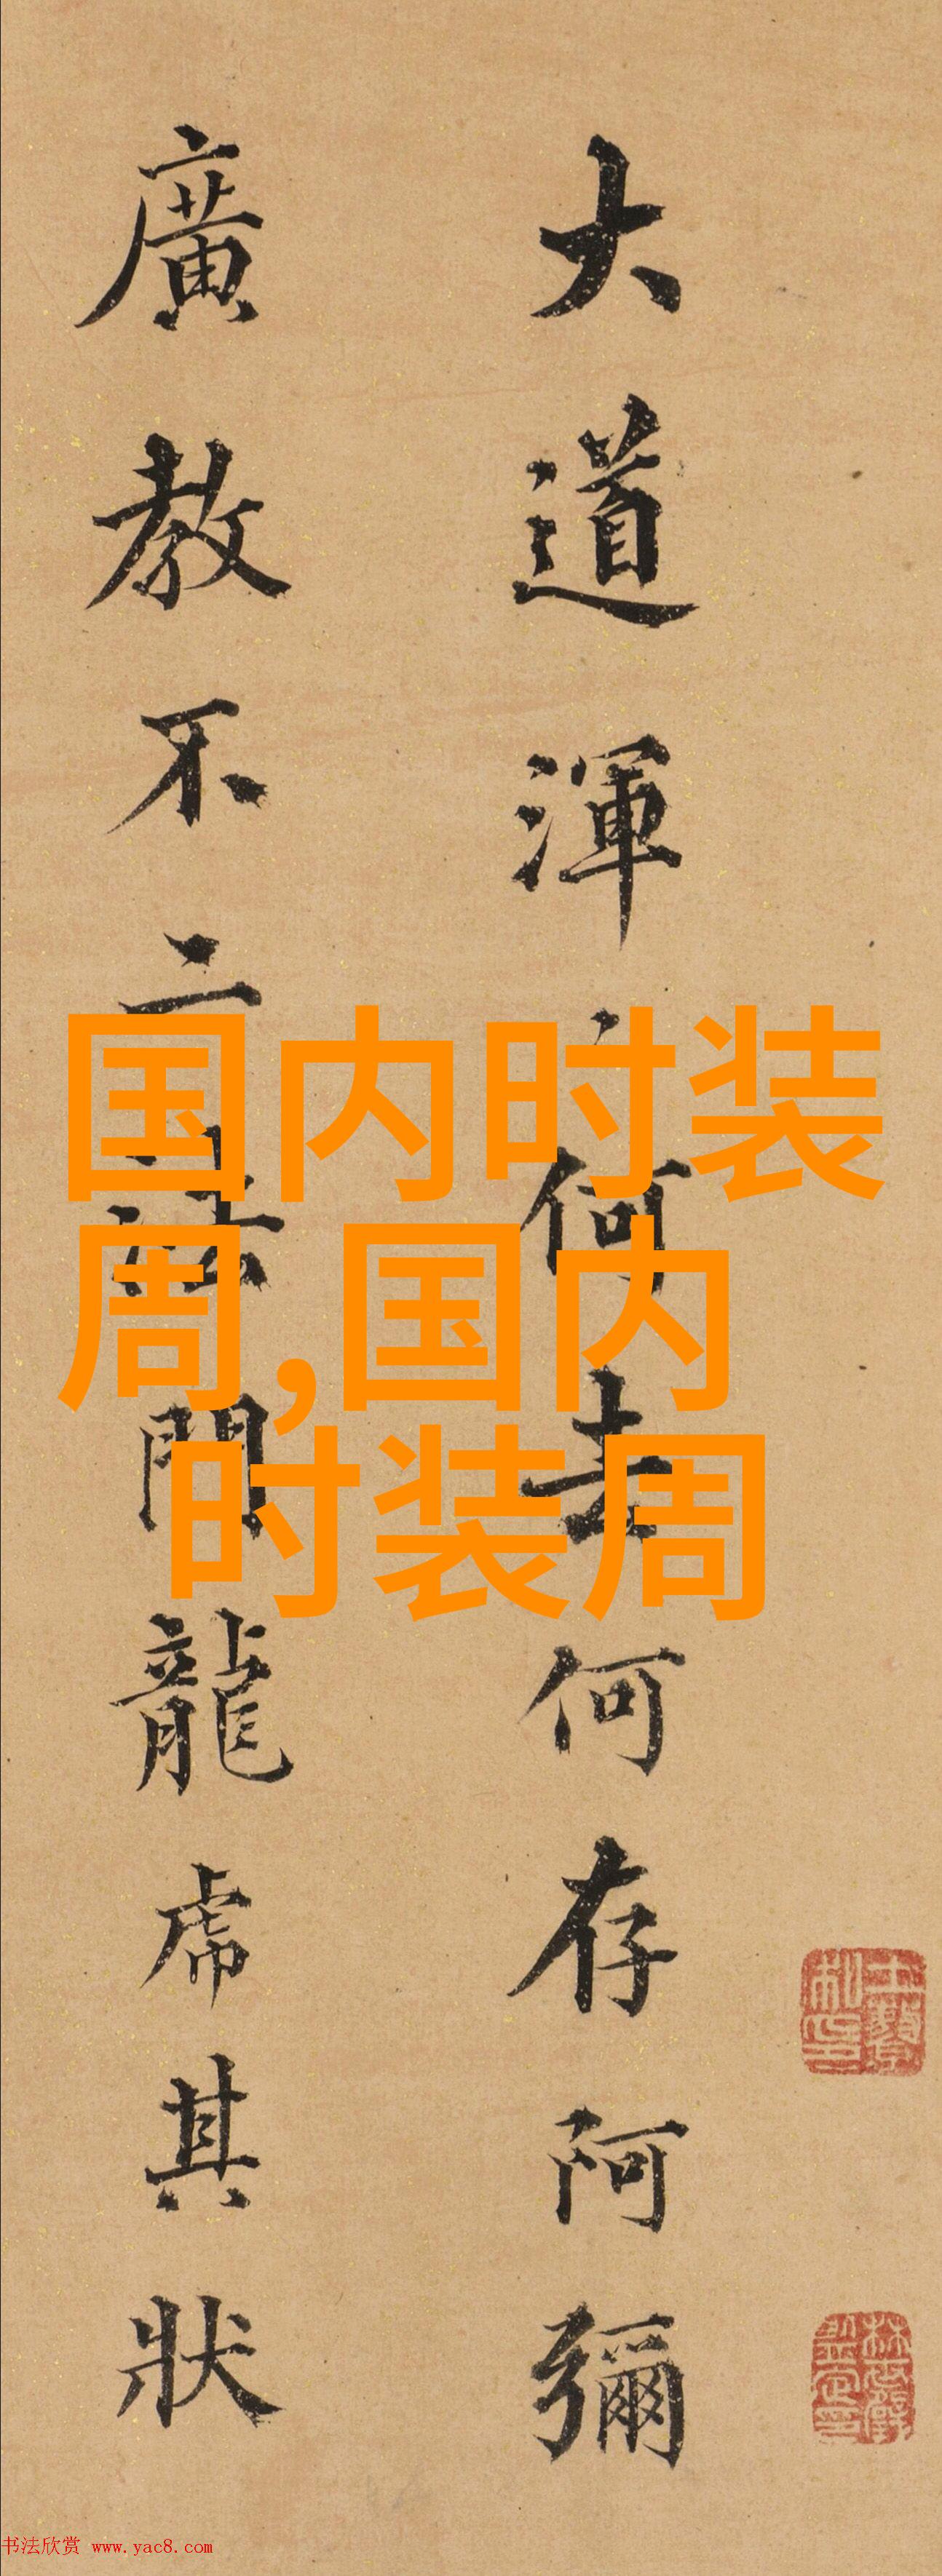 大道渾何去何存阿彌
廣教不二法門龍虎其狀
国内时装
周,国内
时装周
书法欣赏 www.yac8.com